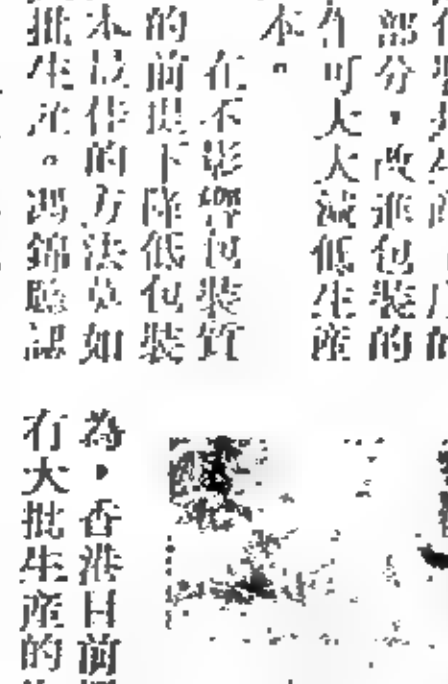 部分，改進包裝的
作可大大減低生産
本。
在不影響包裝質
的前提下降低包裝
本最佳的方法莫如
批生産。馮錦聰認
為，香港目前
有大批生産的